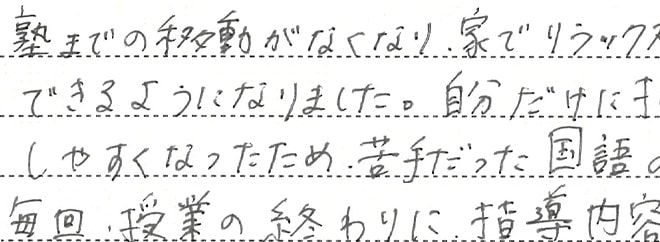 塾までの移動がなくなり、家でリラックス
できるようになりました。自分だけに
しやすくなったため、苦手だった国語の
毎回、授業の終わりに、指導内容